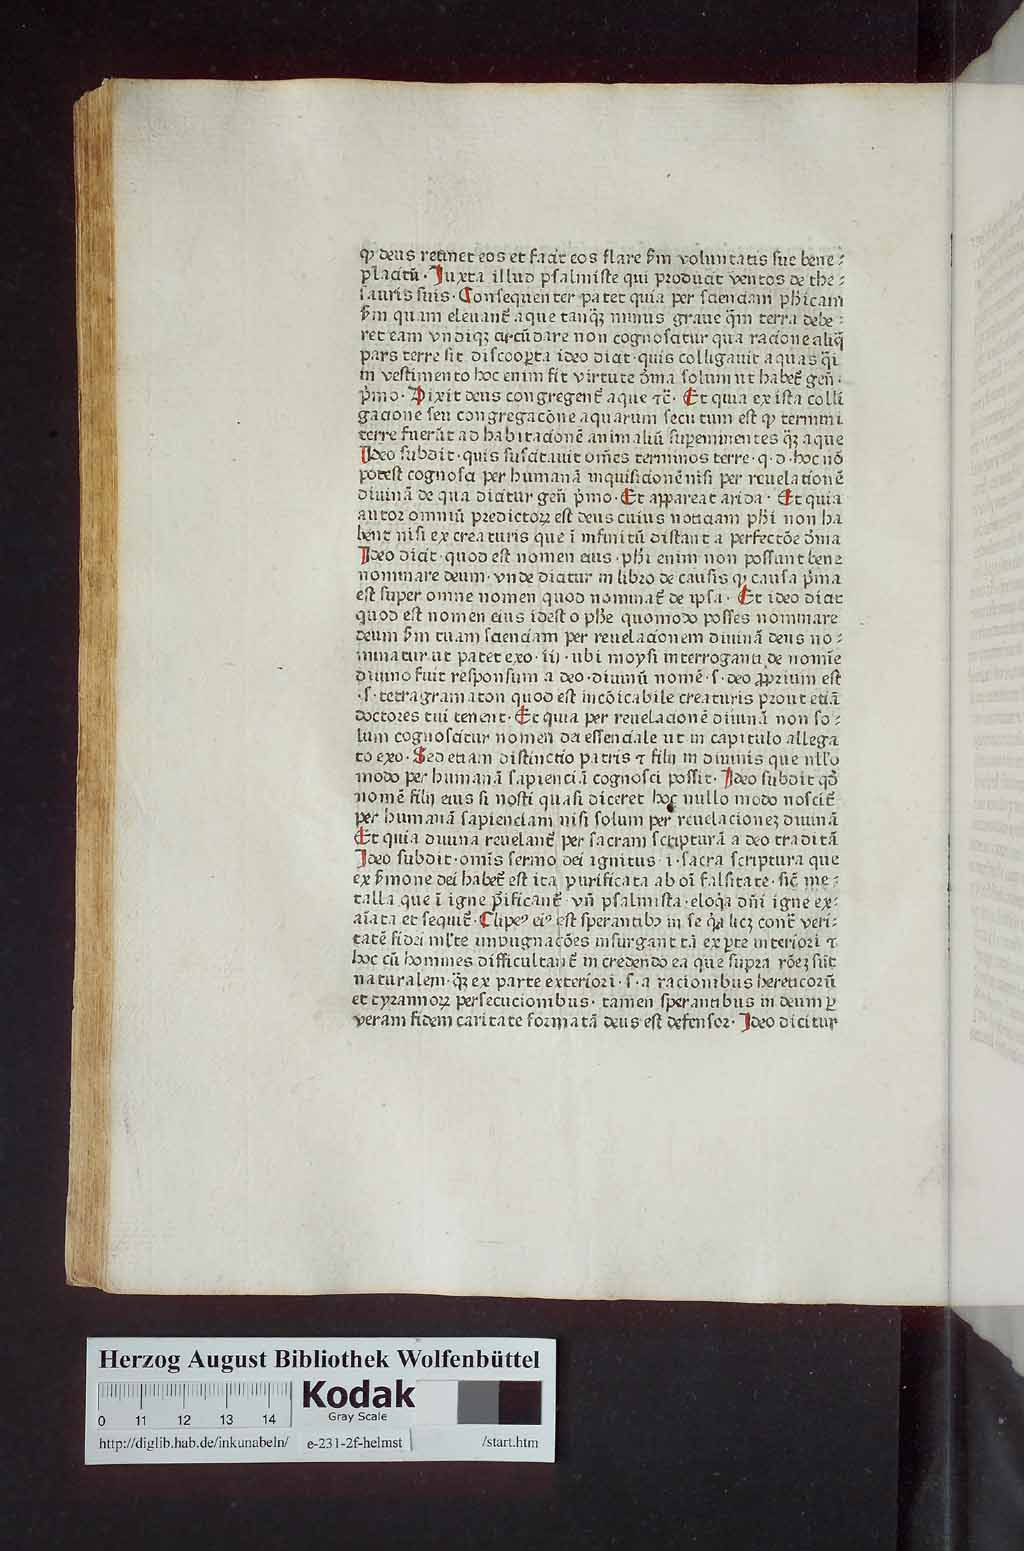 ꝙ deus retinet eos et facit eos flare ẜm voluntatis sue bene⸗
placitū · Juxta illud psalmiste qui producit ventos de the⸗
sauris suis · Consequenter patet quia per scienciam phicam
ẜm quam elevant᷑ aque tanq̃ꝫ minus graue q̃m terra debe⸗
ret eam vndiqꝫ circūdare non cognoscitur qua racione aliq̃
pars terre sit discoopta ideo dicit · quis colligauit aquas q̃i
in vestimento hoc enim fit virtute d̄ina solum ut habet᷑ geñ ·
p̄mo · Dixit deus congregent᷑ aque ⁊c̄ · Et quia ex ista colli
gacione seu congregacōne aquarum secutum est ꝙ termini
terre fuerūt ad habitacionē animaliū suꝑeminentes q̃ꝫ aque
Ideo subdit · quis suscitauit om̄es terminos terre · q · d · hoc nō
potest cognosci per humanā inquisicionē nisi per reuelacionē
diuinā de qua dicitur geñ p̄mo · Et appareat arida · Et quia
autor omniū predictoꝝ est deus cuius noticiam phi non ha
bent nisi ex creaturis que ī infinitū distant a perfectōe d̄ina
Ideo dicit · quod est nomen eius · phi enim non possunt bene
nominare deum · vnde dicitur in libro de causis ꝙ causa p̄ma
est super omne nomen quod nominat᷑ de ipsa · Et ideo dicit
quod est nomen eius idest o phe quomodo posses nominare
deum ẜm tuam scienciam per reuelacionem diuinā deus no⸗
minatur ut patet exo · iij · ubi moysi interroganti de nomīe
diuino fuit responsum a deo · diuinū nomē · s · deo ꝓprium est
· s · tetragramaton quod est incōicabile creaturis prout etiā
doctores tui tenent · Et quia per reuelacionē diuinā non so⸗
lum cognoscitur nomen dei essenciale ut in capitulo allega
to exo · Sed etiam distinctio patris ⁊ filij in diuinis que nll'o
modo per humanā sapienciā cognosci possit · Ideo subdit qd̄
nomē filij eius si nosti quasi diceret hoc nullo modo noscit᷑
per humanā sapienciam nisi solum per reuelacionez diuinā
Et quia diuina reuelant᷑ per sacram scripturā a deo traditā
Ideo subdit · om̄is sermo dei ignitus · i · sacra scriptura que
ex ẜmone dei habet᷑ est ita purificata ab oī falsitate · sic᷑ me⸗
talla que ī igne p̄ificant᷑ vñ psalmista · eloq̃a dñi igne ex⸗
aīata et sequit᷑ · Clipeꝰ eiꝰ est sperantibꝫ in se q̃a licꝫ cont᷑ veri⸗
tatē fidei ml'te impugnacōes insurgant tā ex ꝑte interiori ⁊
hoc cū homines difficultant᷑ in credendo ea que supra rōeꝫ sūt
naturalem · q̃ꝫ ex parte exteriori · s · a racionibus hereticorū
et tyrannoꝝ persecucionibus · tamen sperantibus in deum ꝑ
veram fidem caritate formatā deus est defensor · Ideo dicitur
Herzog August Bibliothek Wolfenbüttel
0 11 12 13 14
Kodak
Gray Scale
http://diglib.hab.de/inkunabeln/ e-231-2f-helmst /start.htm